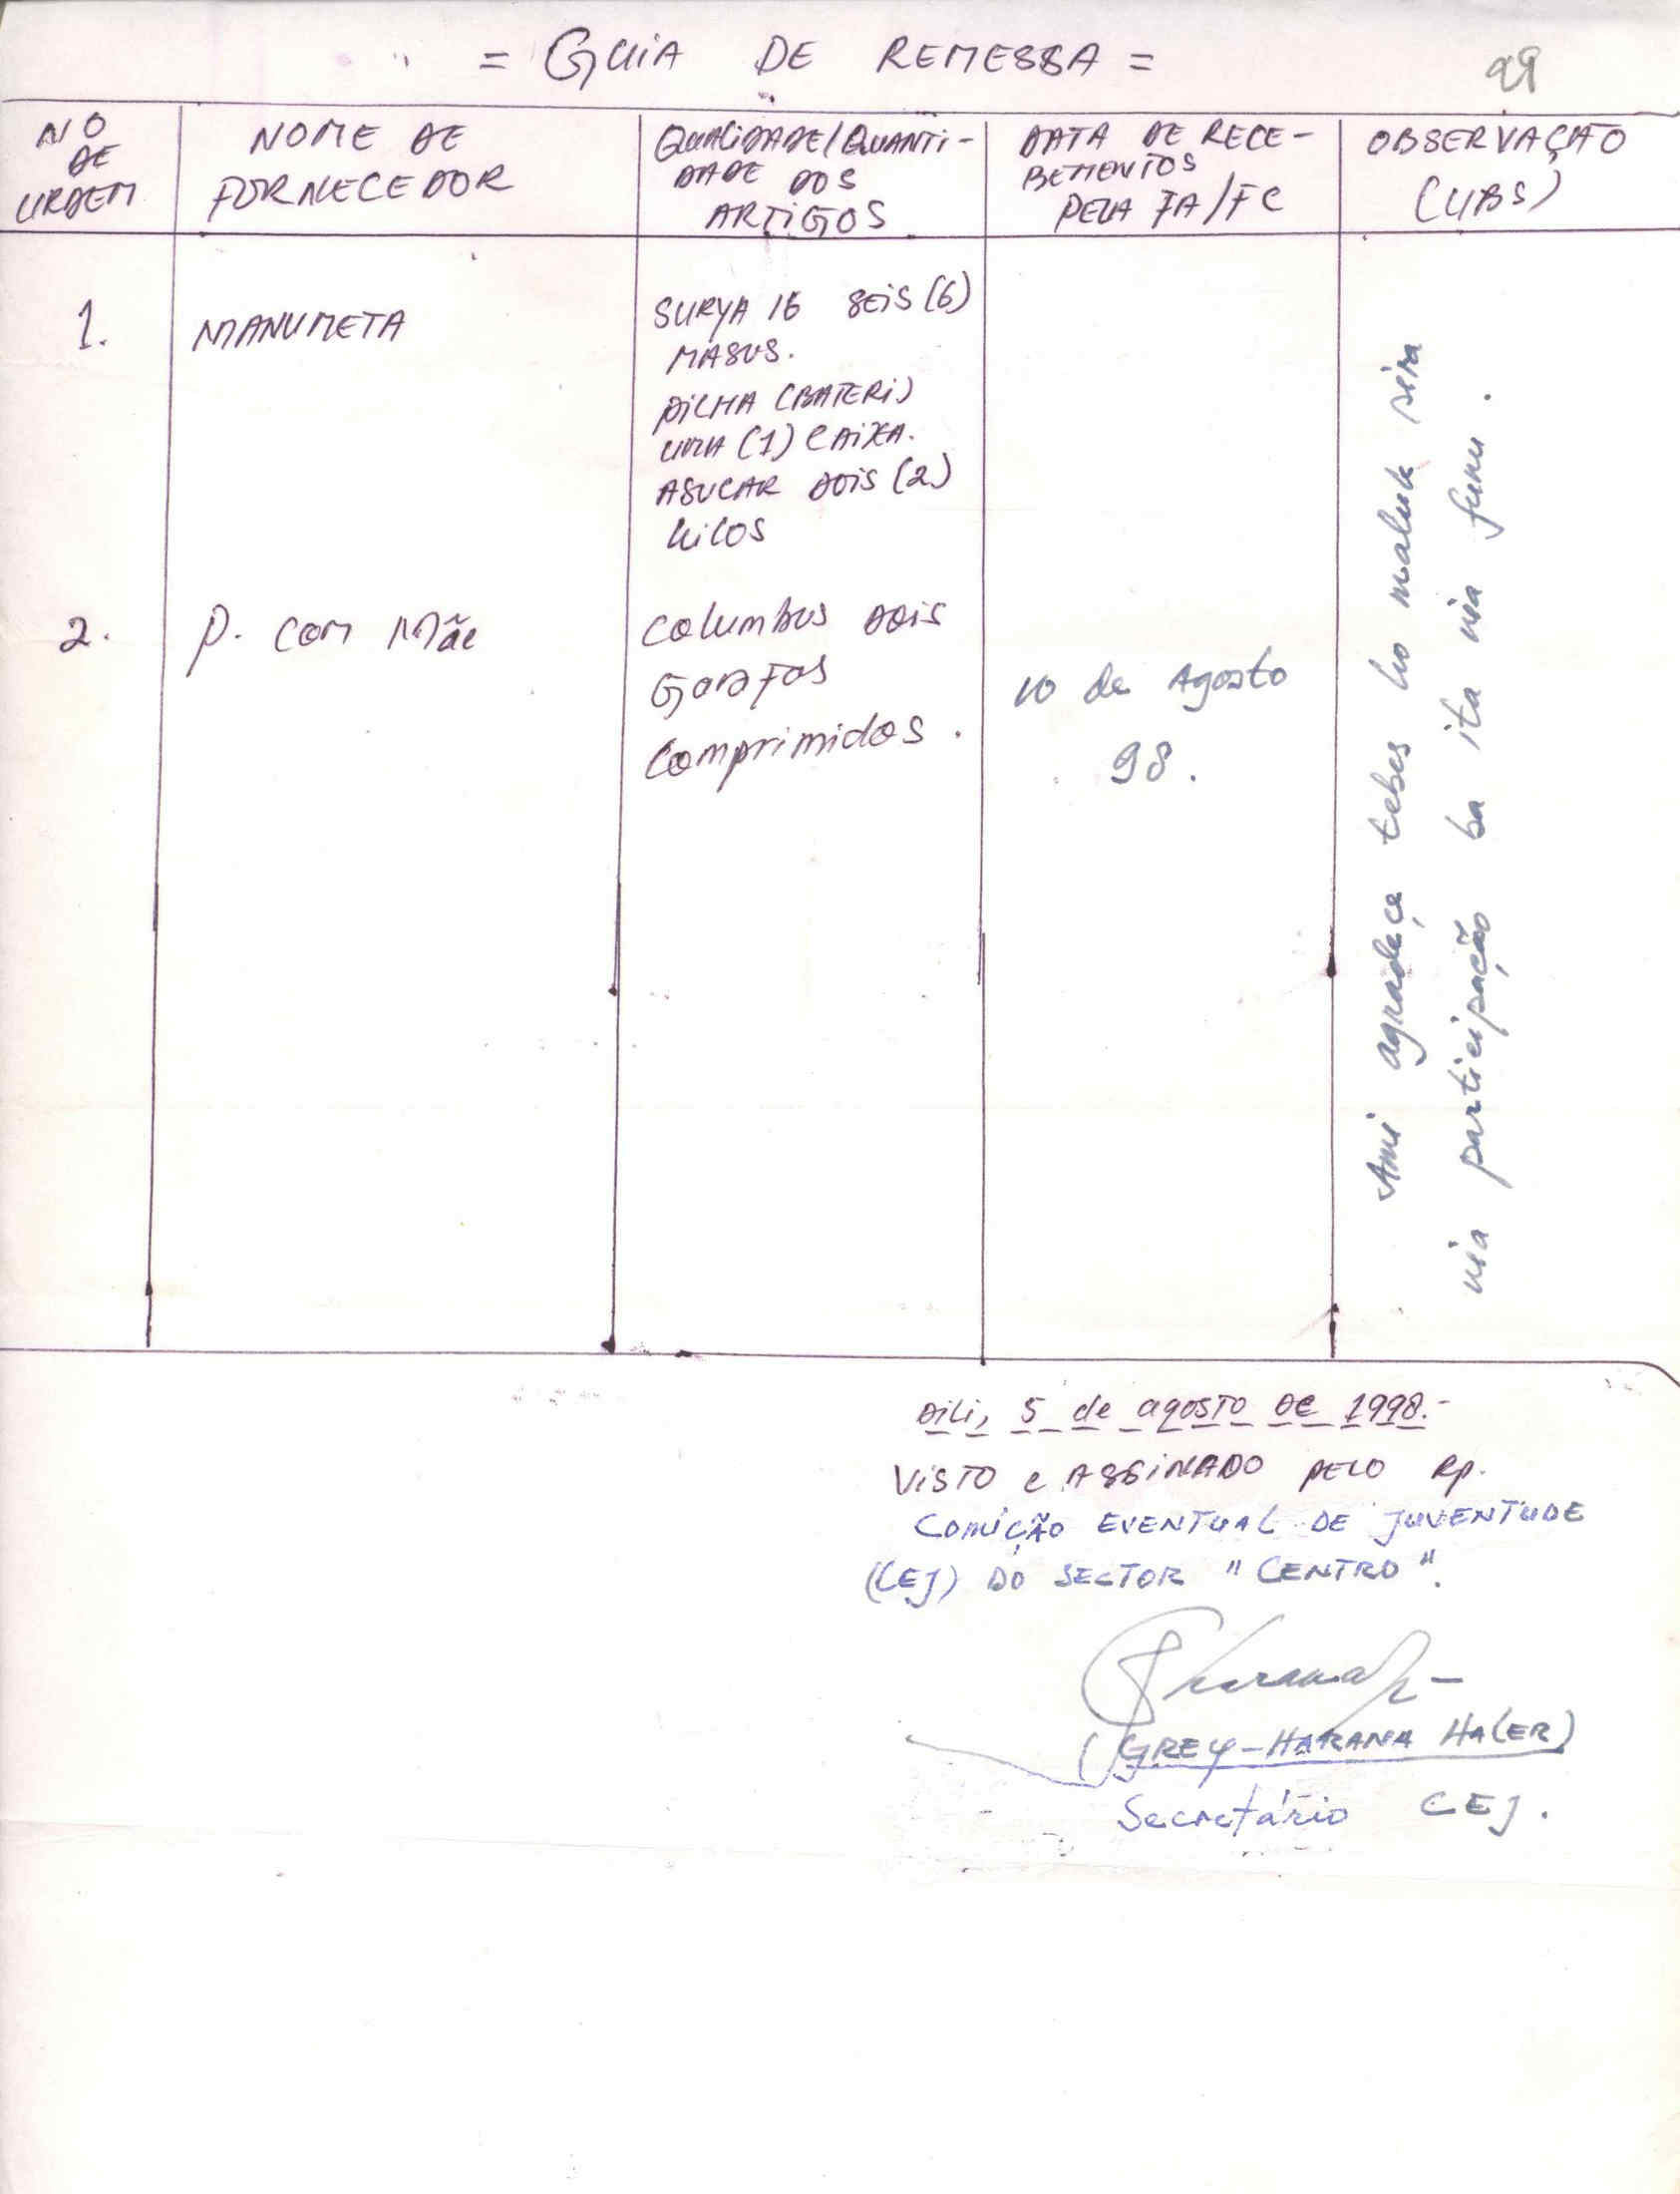 = GUIA DE REMESSA =
99
NO
DE
URDEM
NOME DE
FORNECEDOR
QUALIDADE/QUANTI-
DADE DOS
ARTIGOS
DATA DE RECE-
BEMENTOS
PELA FA/FC
OBSERVAÇÃO
(UBS)
1.
MANUMETA
SURYA 16 SEIS (6)
MASUS.
PILHA (BATERI)
UMA (1) CAIXA.
ASUCAR DOIS (2)
KILOS
2.
P. COM Mãe
Columbus DOIS
Garafas
Comprimidos.
10 de Agosto
98.
Ami agradeça tebes ho maluk sira
nia participação ba ita nia funu.
Dili, 5 de agosto DE 1998.-
VISTO e ASSINADO PELO Rp.
COMIÇÃO EVENTUAL DE JUVENTUDE
(CEJ) DO SECTOR "CENTRO".
(GREY-HARANA HALER)
Secretário CEJ.